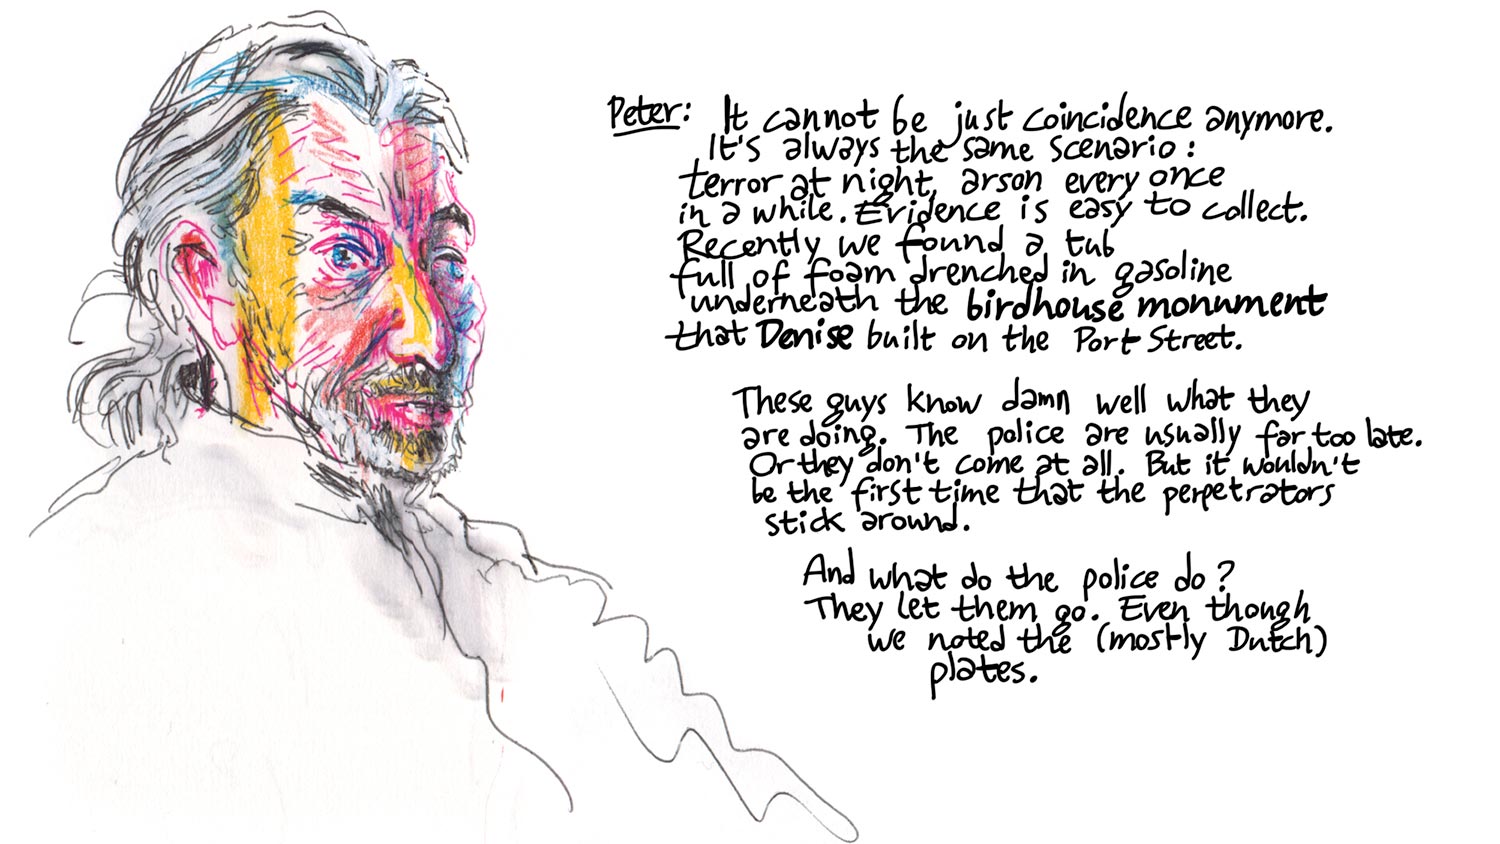 Peter: It cannot be just coincidence anymore.
It's always the same scenario:
terror at night, arson every once
in a while. Evidence is easy to collect.
Recently we found a tub
full of foam drenched in gasoline
underneath the birdhouse monument
that Denise built on the Port Street.
These guys know damn well what they
are doing. The police are usually far too late.
Or they don't come at all. But it wouldn't
be the first time that the perpetrators
stick around.
And what do the police do?
They let them go. Even though
we noted the (mostly Dutch)
plates.